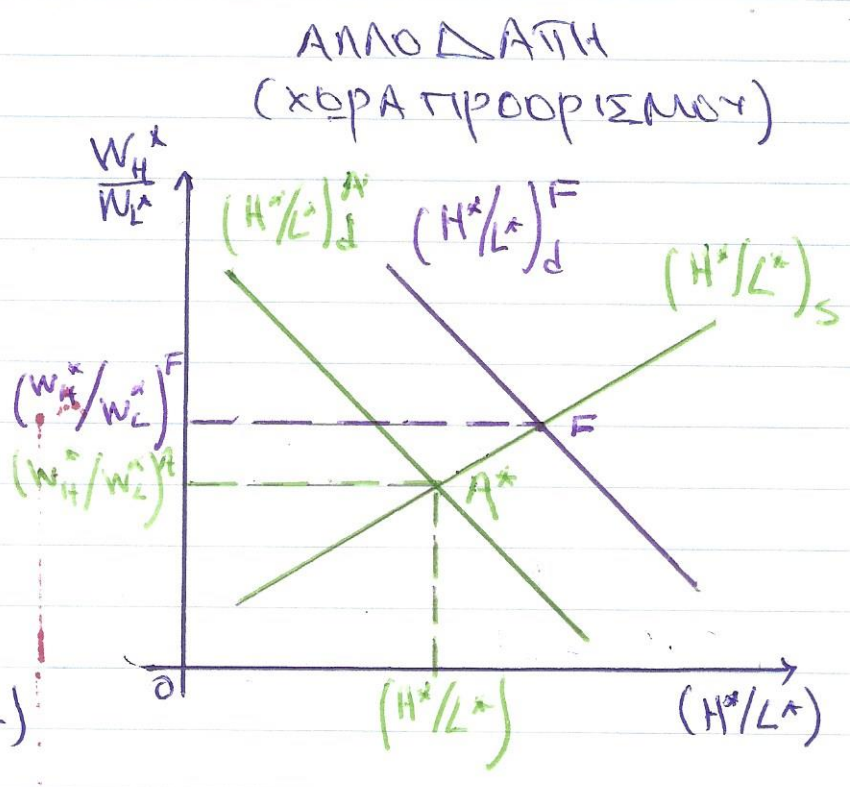 ΑΛΛΟΔΑΠΗ
(ΧΩΡΑ ΠΡΟΟΡΙΣΜΟΥ)
W_H*/W_L*
(H*/L*)_d^A
(H*/L*)_d^F
(H*/L*)_s
(W_H*/W_L*)^F
F
(W_H*/W_L*)^A
A*
0
(H*/L*)
(H*/L*)